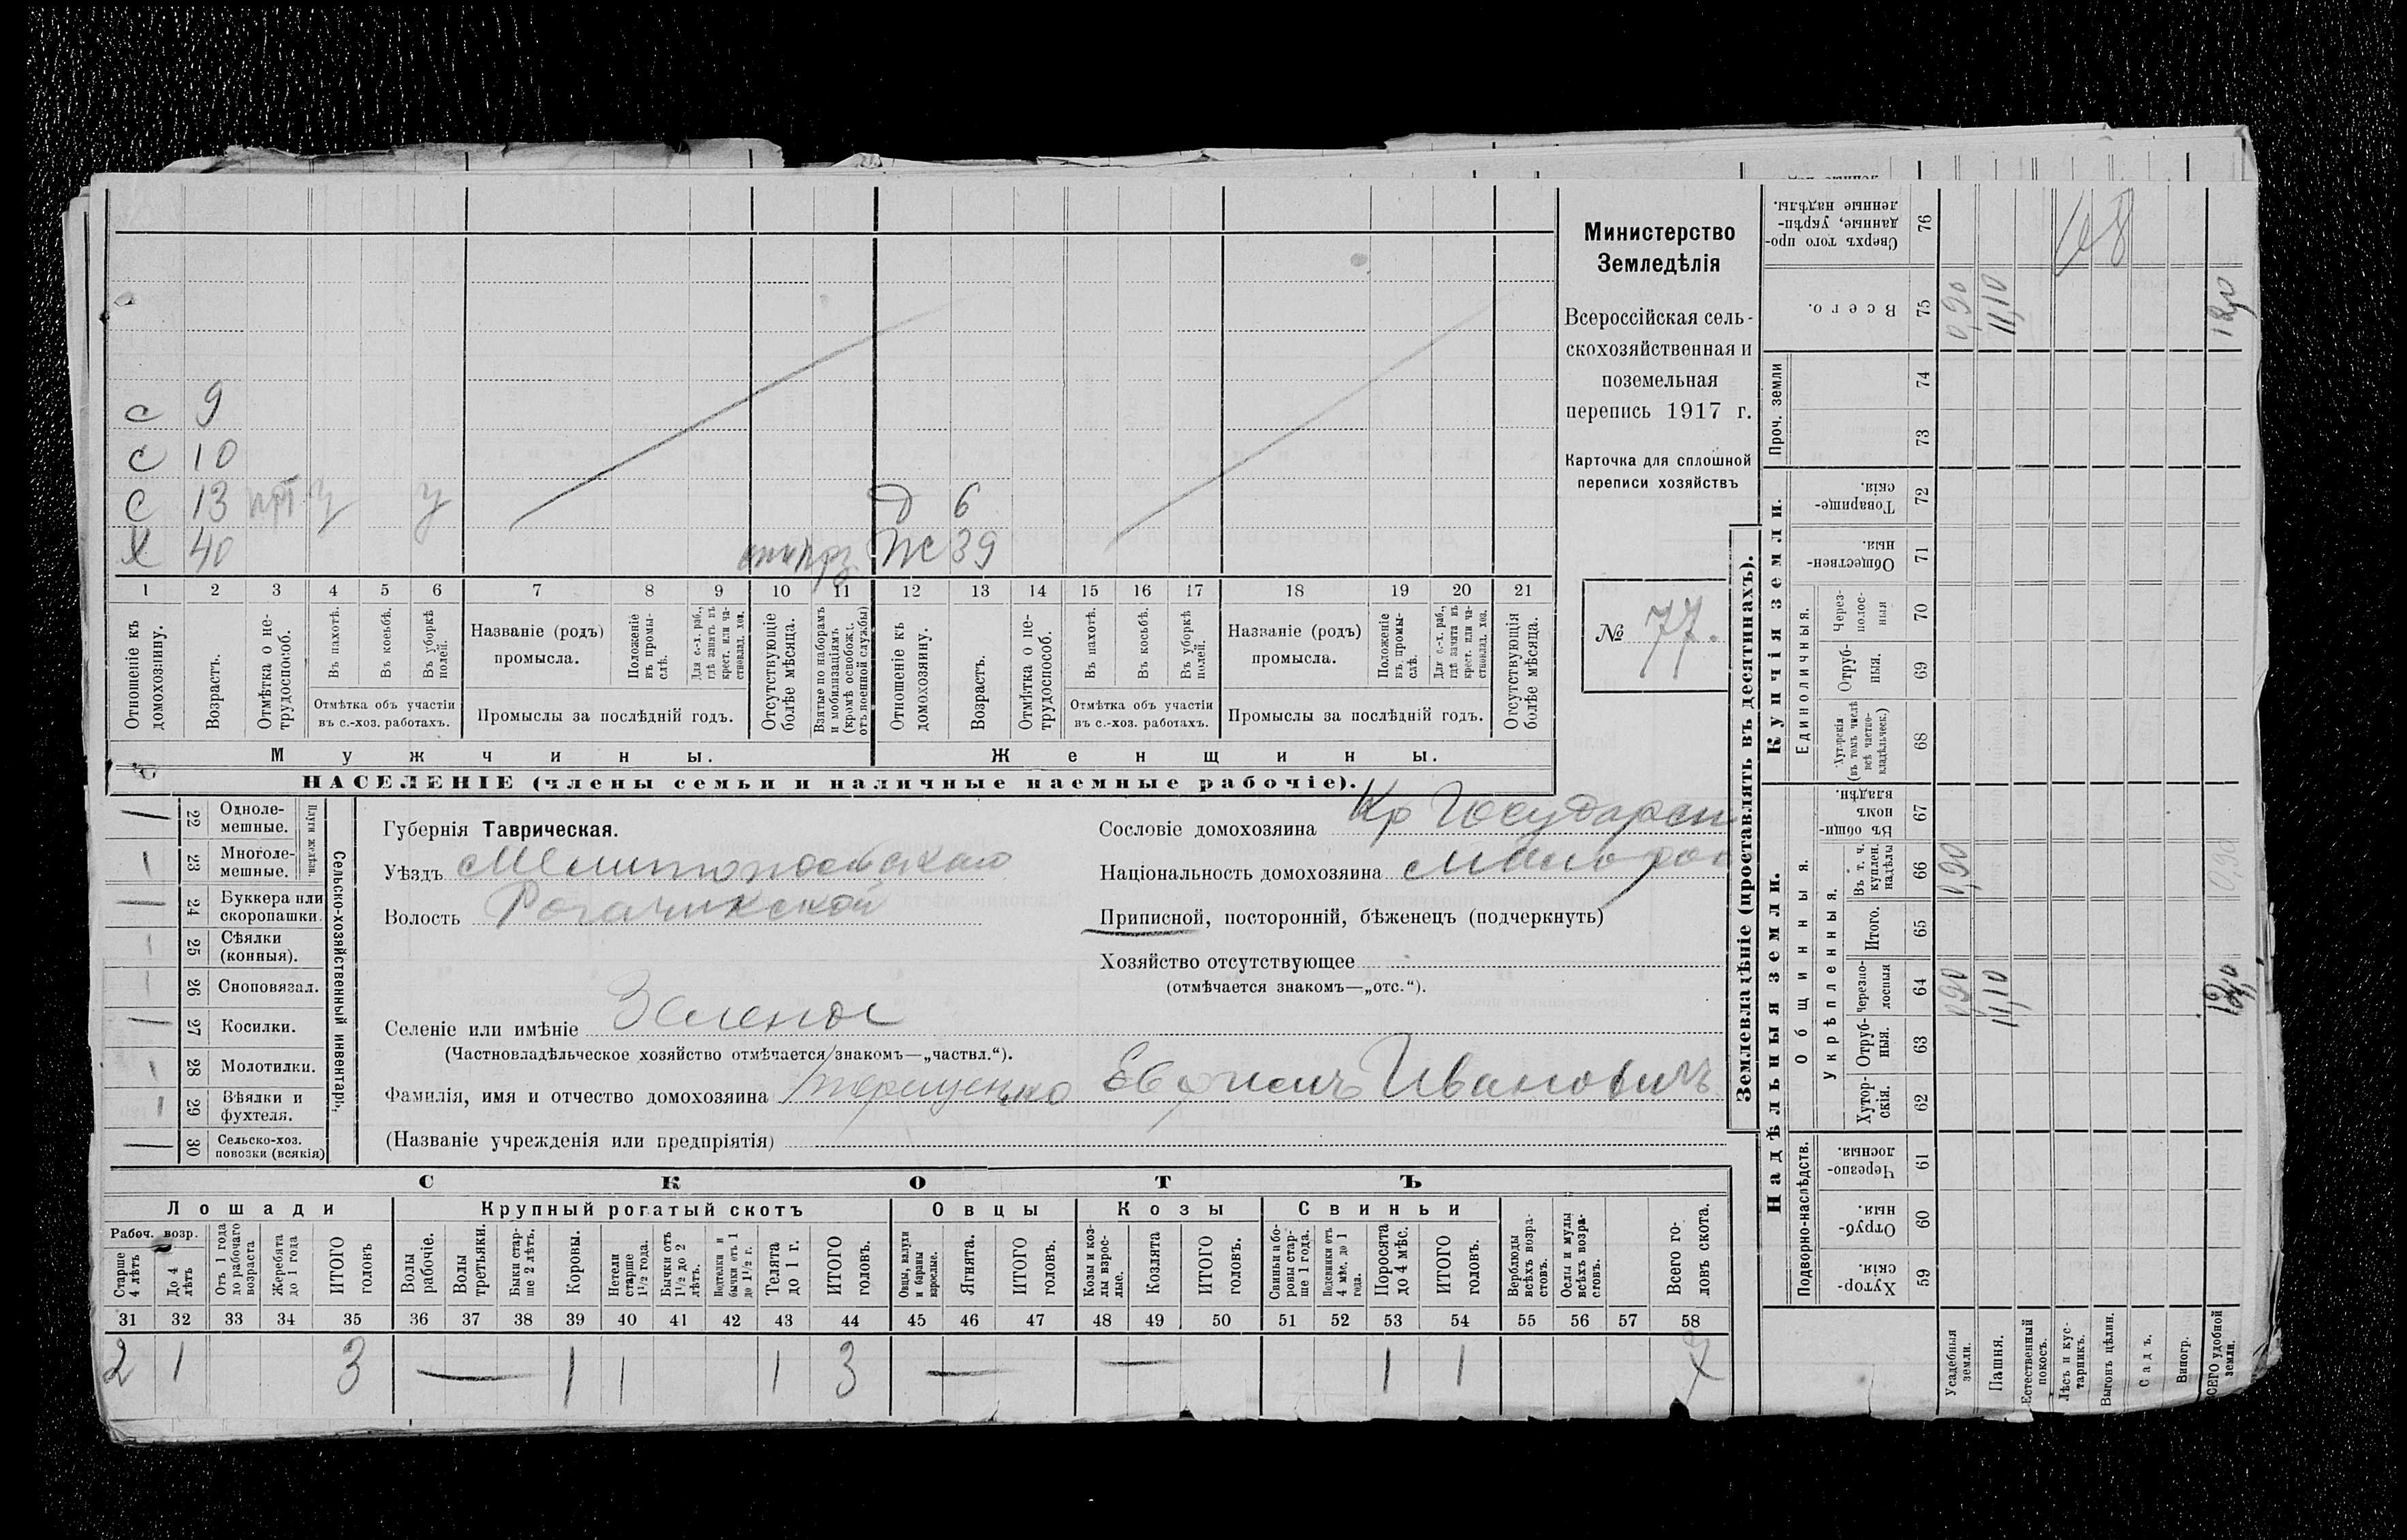 с 9
с 10
с 13
д 6
х 40
ж 39
1 2 3 4 5 6 7 8 9 10 11 12 13 14 15 16 17 18 19 20 21
Отношеніе къ домохозяину.
Возрастъ.
Отмѣтка о не-
трудоспособ.
Въ пахотѣ.
Въ косьбѣ.
Въ уборкѣ
полей.
Отмѣтка объ участіи
въ с.-хоз. работахъ.
Названіе (родъ)
промысла.
Положеніе
въ промы-
слѣ.
Для с.-х. раб.,
гдѣ занятъ въ
крест. или ча-
стновлад. хоз.
Промыслы за послѣдній годъ.
Отсутствующіе
болѣе мѣсяца.
Взятые по наборамъ
и мобилизаціямъ
(кромѣ освобожд.
отъ военной службы)
Отношеніе къ
домохозяину.
Возрастъ.
Отмѣтка о не-
трудоспособ.
Въ пахотѣ.
Въ косьбѣ.
Въ уборкѣ
полей.
Отмѣтка объ участіи
въ с.-хоз. работахъ.
Названіе (родъ)
промысла.
Положеніе
въ промы-
слѣ.
Для с.-х. раб.,
гдѣ занята въ
крест. или ча-
стновлад. хоз.
Промыслы за послѣдній годъ.
Отсутствующія
болѣе мѣсяца.
Мужчины.
Женщины.
НАСЕЛЕНІЕ (члены семьи и наличные наемные рабочіе).
Министерство
Земледѣлія
Всероссійская сель-
скохозяйственная и
поземельная
перепись 1917 г.
Карточка для сплошной
переписи хозяйствъ
№ 77.
22 Одноле-
мешные.
23 Многоле-
мешные.
Плуги желѣзн.
24 Буккера или
скоропашки.
25 Сѣялки
(конныя).
26 Сноповязал.
27 Косилки.
28 Молотилки.
29 Вѣялки и
фухтеля.
30 Сельско-хоз.
повозки (всякія)
Сельско-хозяйственный инвентарь.
Губернія Таврическая.
Уѣздъ Мелитопольскаго
Волость Рогачикской
Селеніе или имѣніе Зеленое
(Частновладѣльческое хозяйство отмѣчается знакомъ—„частвл.“).
Фамилія, имя и отчество домохозяина Терещенко Ивановичъ
(Названіе учрежденія или предпріятія)
Сословіе домохозяина Кр Государст
Національность домохозяина Малорос
Приписной, посторонній, бѣженецъ (подчеркнуть)
Хозяйство отсутствующее
(отмѣчается знакомъ—„отс.“).
СКОТЪ
Лошади
Крупный рогатый скотъ
Овцы
Козы
Свиньи
Рабоч. возр.
Старше
4 лѣтъ
До 4
лѣтъ
Отъ 1 года
до рабочаго
возраста
Жеребята
до 1 года
ИТОГО
головъ
Волы
рабочіе.
Волы
третьяки.
Быки стар-
ше 2 лѣтъ.
Коровы.
Нетели
старше
1½ года.
Бычки отъ
1½ до 2
лѣтъ.
Подтелки и
бычки отъ 1
до 1½ г.
Телята
до 1 г.
ИТОГО
головъ.
Овцы, валухи
и бараны
взрослые.
Ягнята.
ИТОГО
головъ.
Козы и коз-
лы взрос-
лые.
Козлята
ИТОГО
головъ.
Свиньи и бо-
ровы стар-
ше 1 года.
Подсвинки отъ
4 мѣс. до 1
года.
Поросята
до 4 мѣс.
ИТОГО
головъ.
Верблюды
всѣхъ возра-
стовъ.
Ослы и мулы
всѣхъ возра-
стовъ.
Всего го-
ловъ скота.
31 32 33 34 35 36 37 38 39 40 41 42 43 44 45 46 47 48 49 50 51 52 53 54 55 56 57 58
2 1 3 — 1 1 1 3 — — 1 1 7
Землевладѣніе (проставлять въ десятинахъ).
Купчія земли.
Надѣльныя земли.
Сверхъ того про-
данные, укрѣп-
ленные надѣлы. 76
Всего. 75 0,90 11,10
Проч. земли
74
73
Товарище-
скія. 72
Обществен-
ныя. 71
Единоличныя.
Через-
полос-
ныя 70
Отруб-
ныя. 69
Хуторскія
(въ томъ числѣ
всѣ частно-
владѣльческ.) 68
Общинныя.
Въ общин-
номъ
владѣн. 67
Укрѣпленныя.
Въ т. ч.
куплен.
надѣлы 66 0,90 0,90
Итого. 65
Черезпо-
лосныя 64 0,90 11,10
Отруб-
ныя. 63
Хутор-
скія. 62
Подворно-наслѣдств.
Черезпо-
лосныя. 61
Отруб-
ныя. 60
Хутор-
скія. 59
Усадебныя
земли.
Пашня.
Естественный
покосъ.
Лѣсъ и кус-
тарникъ.
Выгонъ цѣлин.
Садъ.
Виногр.
ВСЕГО удобной
земли.